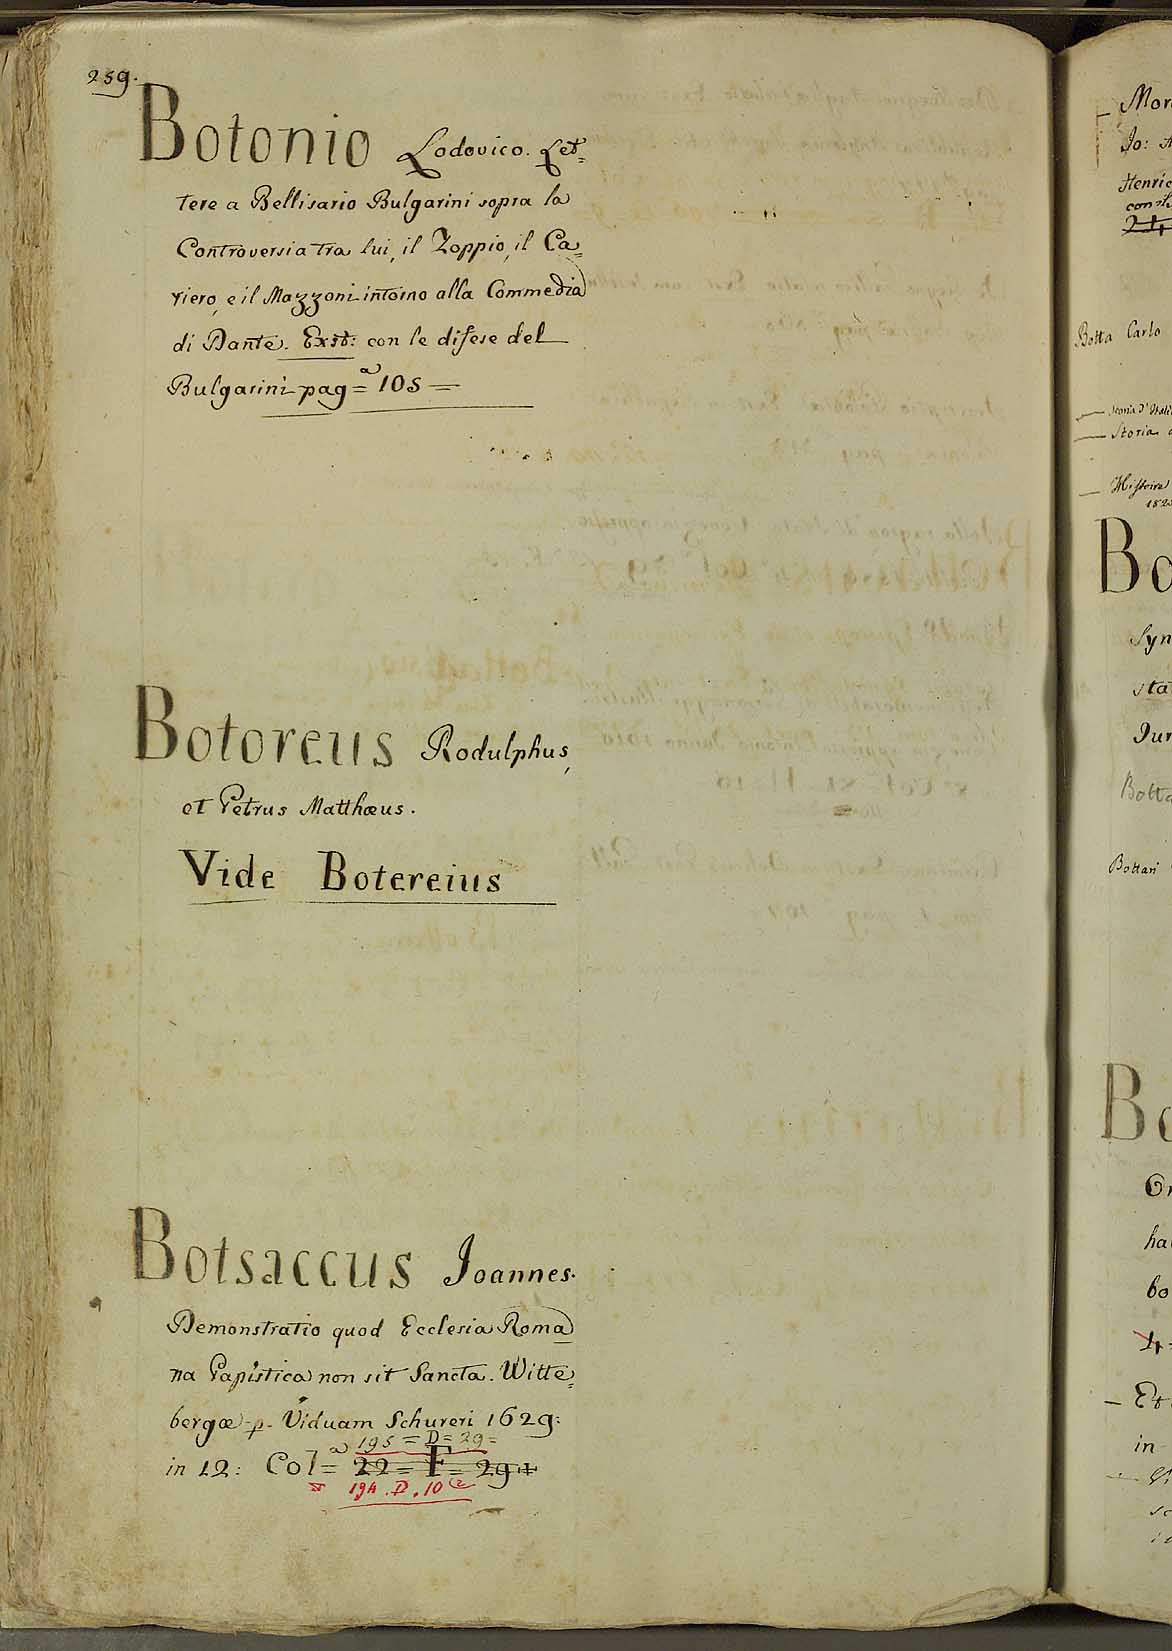 259.
Botonio Lodovico. Let=
tere a Bellisario Bulgarini sopra la
Controversia tra lui, il Zoppio, il Ca=
riero, e il Mazzoni intorno alla Commedia
di Dante. Exst: con le difese del
Bulgarini pag=a 105 =
Botoreus Rodulphus,
et Petrus Matthæus.
Vide Botereius
Botsaccus Joannes.
Demonstratio quod Ecclesia Roma
na Papistica non sit Sancta. Witte=
bergæ p. Viduam Schureri 1629:
195 = D = 29 =
in 12: Col=a 22 = F = 29
194. D. 10
Jo:
Henric
Botta Carlo
Storia d'Itali
Storia
Histoire
Bo
Syn
sta
Jur
Botta
Bottari
Bo
ha
bo
Et
in